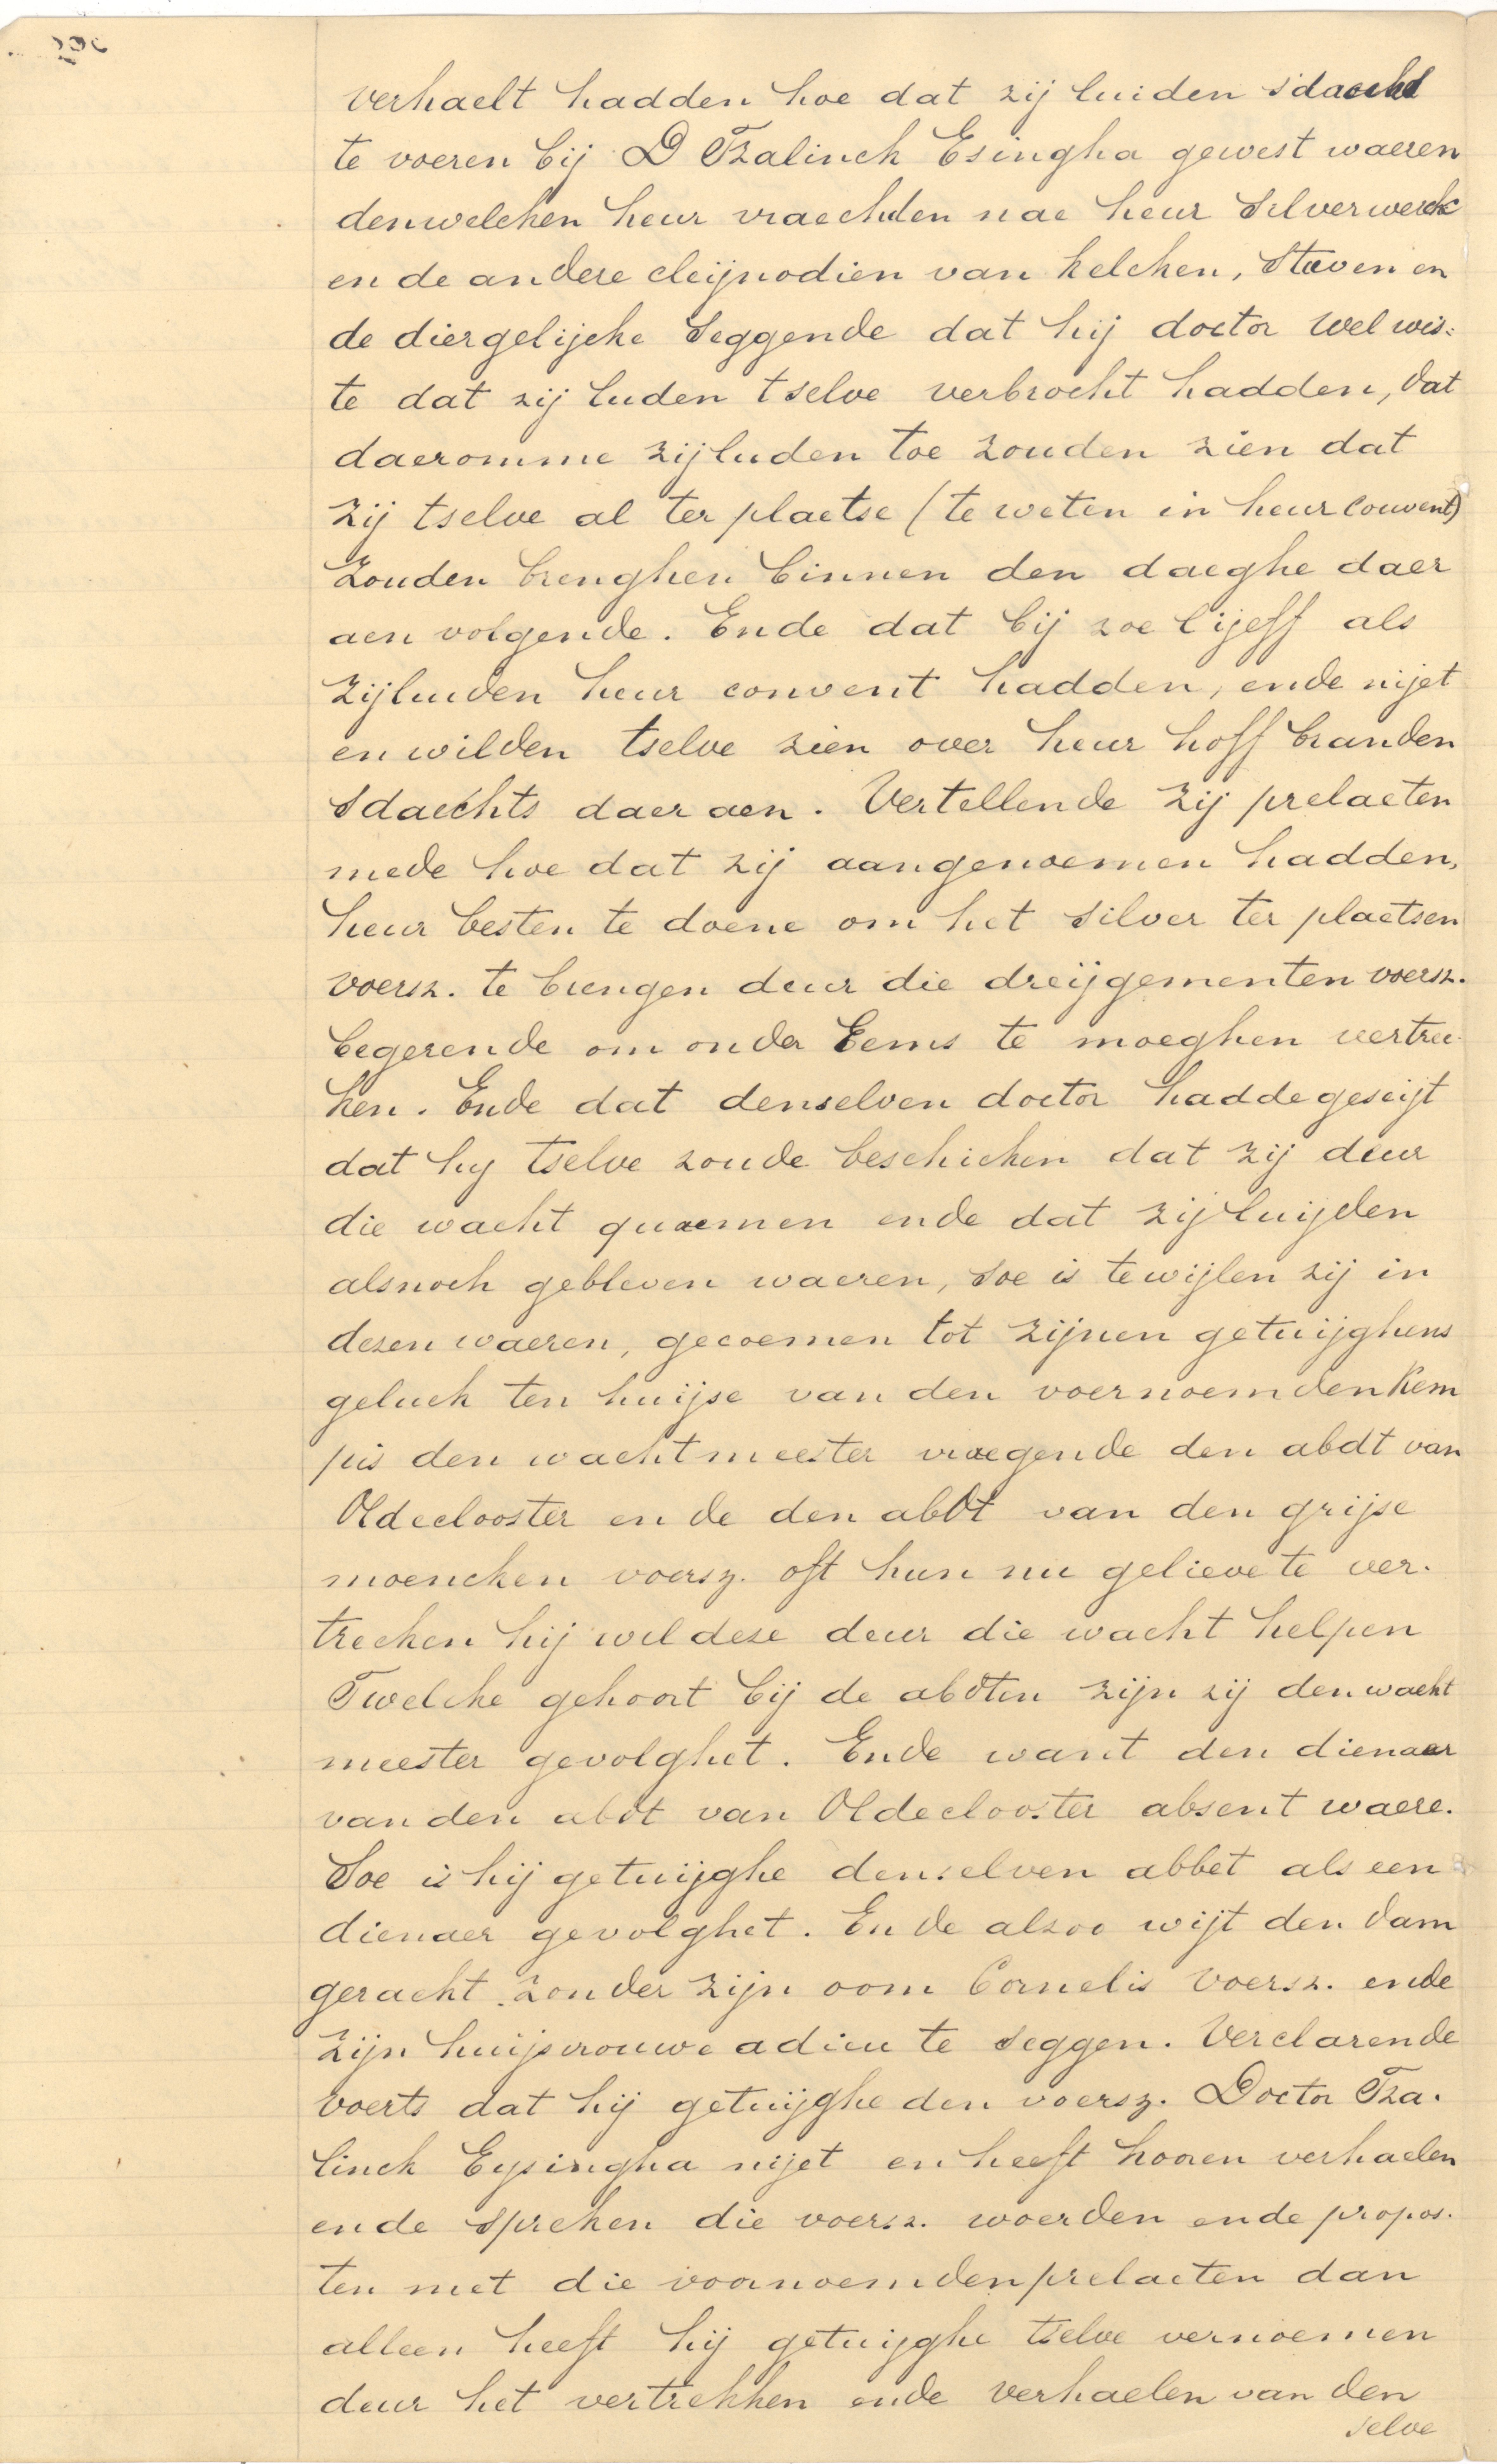 verhaelt hadden hoe dat zij luiden sdaechs
te voeren bij D Tzalinck Esingha gewest waeren
denwelcken heur vraechden nae heur Silverwerck
ende andere cleijnodien van kelcken, Staven en
de diergelijcke Seggende dat hij doctor wel wis:
te dat zij luden tselve verbrocht hadden, dat
daeromme zijluden toe zouden zien dat
zij tselve al ter plaetse (te weten in heur convent)
zouden brenghen binnen den daeghe daer
aen volgende. Ende dat bij zoe lijeff als
zijluiden heur convent hadden, ende nijet
en wilden tselve zien over heur hoff branden
Sdaechts daer aen. Vertellende zij prelaeten
mede hoe dat zij aangenoemen hadden,
heur besten te doene om het silver ter plaetsen
voersz. te brengen deur die dreijgementen voersz.
begerende om onder Eems te moeghen vertrec-
ken. Ende dat denselven doctor hadde geseijt
dat hij tselve zoude beschicken dat zij deur
die wacht quaemen ende dat zij luijden
alsnoch gebleven waeren, Soe is tewijlen zij in
dezen waeren, gecoemen tot zijnen getuijghens
geluck ten huijse van den voernoemden Kem
pis den wachtmeester vraegende den abdt van
Oldeclooster ende den abdt van den grijse
moencken voersz. oft hun nu gelieve te ver-
trecken hij wildese deur die wacht helpen
Twelcke gehoort bij de abdten zijn zij den wacht
meester gevolghet. Ende want den dienaer
van den abdt van Oldeclooster absent waere.
Soe is hij getuijghe denselven abbet als een
dienaer gevolghet. Ende alzoo wijt den dam
geracht zonder zijn oom Cornelis voersz. ende
zijn huijsvrouwe adieu te seggen. Verclarende
voerts dat hij getuijghe den voersz. Doctor Tza-
linck Eysingha nijet en heeft hooren verhaelen
ende spreken die voersz. woerden ende propos-
ten met die voornoemden prelaeten dan
alleen heeft hij getuijghe tselve vernoemen
deur het vertrekken ende verhaelen van den
selve